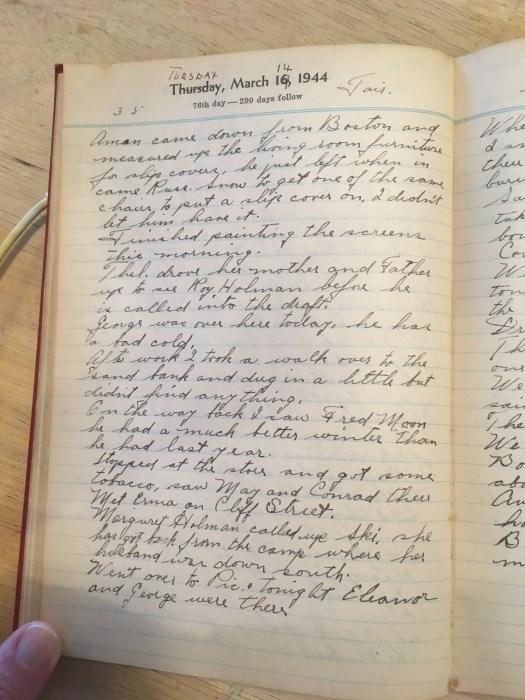 TUESDAY 14
Thursday, March 16, 1944 Fair.
76th day — 290 days follow
35
A man came down from Boston and
measured up the living room furniture
for slip covers, he just left when in
came Russ. Snow to get one of the same
chairs to put a slip cover on, I didn't
let him have it.
Finished painting the screens
this morning.
Thel. drove her mother and Father
up to see Roy Holman before he
is called into the draft.
George was over here today, he has
a bad cold.
After work I took a walk over to the
sand bank and dug in a little but
didn't find anything.
On the way back I saw Fred Moon
he had a much better winter than
he had last year.
Stopped at the store and got some
tobacco, saw May and Conrad there
Met Erma on Cliff Street.
Margaret Holman called up Ski, she
has got back from the camp where her
husband was down south.
Went over to Pic.s tonight Eleanor
and George were there